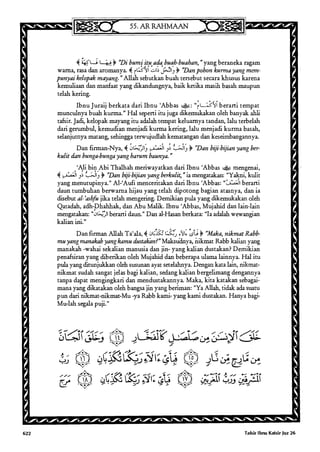 55. AR RAHMAAN
﴾ فِيهَا فَاكِهَةٌ ﴿ "Di bumi itu ada buah-buahan," yang beraneka ragam
warna, rasa dan aromanya. ﴾ وَالنَّخْلُ ذَاتُ الْأَكْمَامِ ﴿ "Dan pohon kurma yang mem-
punyai kelopak mayang." Allah sebutkan buah tersebut secara khusus karena
kemuliaan dan manfaat yang dikandungnya, baik ketika masih basah maupun
telah kering.
Ibnu Juraij berkata dari Ibnu 'Abbas : "الْأَكْمَامِ berarti tempat
munculnya buah kurma." Hal seperti itu juga dikemukakan oleh banyak ahli
tafsir. Jadi, kelopak mayang itu adalah tempat keluarnya tandan, lalu terbelah
dari gerumbul, kemudian menjadi kurma kering, lalu menjadi kurma basah,
selanjutnya matang, sehingga terwujudlah kematangan dan keseimbangannya.
Dan firman-Nya, ﴾ وَالْحَبُّ ذُو الْعَصْفِ وَالرَّيْحَانُ ﴿ "Dan biji-bijian yang ber-
kulit dan bunga-bunga yang harum baunya."
'Ali bin Abi Thalhah meriwayatkan dari Ibnu 'Abbas mengenai,
﴾ وَالْحَبُّ ذُو الْعَصْفِ ﴿ "Dan biji-bijian yang berkulit," ia mengatakan: "Yakni, kulit
yang menutupinya." Al-'Aufi menceritakan dari Ibnu 'Abbas: "الْعَصْفِ berarti
daun tumbuhan berwarna hijau yang telah dipotong bagian atasnya, dan ia
disebut al-'ashfu jika telah mengering. Demikian pula yang dikemukakan oleh
Qatadah, adh-Dhahhak, dan Abu Malik. Ibnu 'Abbas, Mujahid dan lain-lain
mengatakan: "الرَّيْحَانُ berarti daun." Dan al-Hasan berkata: "Ia adalah wewangian
kalian ini."
Dan firman Allah Ta'ala, ﴾ فَبِأَيِّ آلَاءِ رَبِّكُمَا تُكَذِّبَانِ ﴿ "Maka, nikmat Rabb-
mu yang manakah yang kamu dustakan?" Maksudnya, nikmat Rabb kalian yang
manakah -wahai sekalian manusia dan jin- yang kalian dustakan? Demikian
penafsiran yang diberikan oleh Mujahid dan beberapa ulama lainnya. Hal itu
pula yang ditunjukkan oleh susunan ayat setelahnya. Dengan kata lain, nikmat-
nikmat sudah sangat jelas bagi kalian, sedang kalian bergelimang dengannya
tanpa dapat mengingkari dan mendustakannya. Maka, kita katakan sebagai-
mana yang dikatakan oleh bangsa jin yang beriman: "Ya Allah, tidak ada suatu
pun dari nikmat-nikmat-Mu -ya Rabb kami- yang kami dustakan. Hanya bagi-
Mu-lah segala puji."
خَلَقَ الْإِنسَانَ مِن صَلْصَالٍ كَالْفَخَّارِ ١٤ وَخَلَقَ الْجَانَّ
مِن مَّارِجٍ مِّن نَّارٍ ١٥ فَبِأَيِّ آلَاءِ رَبِّكُمَا تُكَذِّبَانِ ١٦ رَبُّ
الْمَشْرِقَيْنِ وَرَبُّ الْمَغْرِبَيْنِ ١٧ فَبِأَيِّ آلَاءِ رَبِّكُمَا تُكَذِّبَانِ ١٨ مَرَجَ
622
Tafsir Ibnu Katsir Juz 26